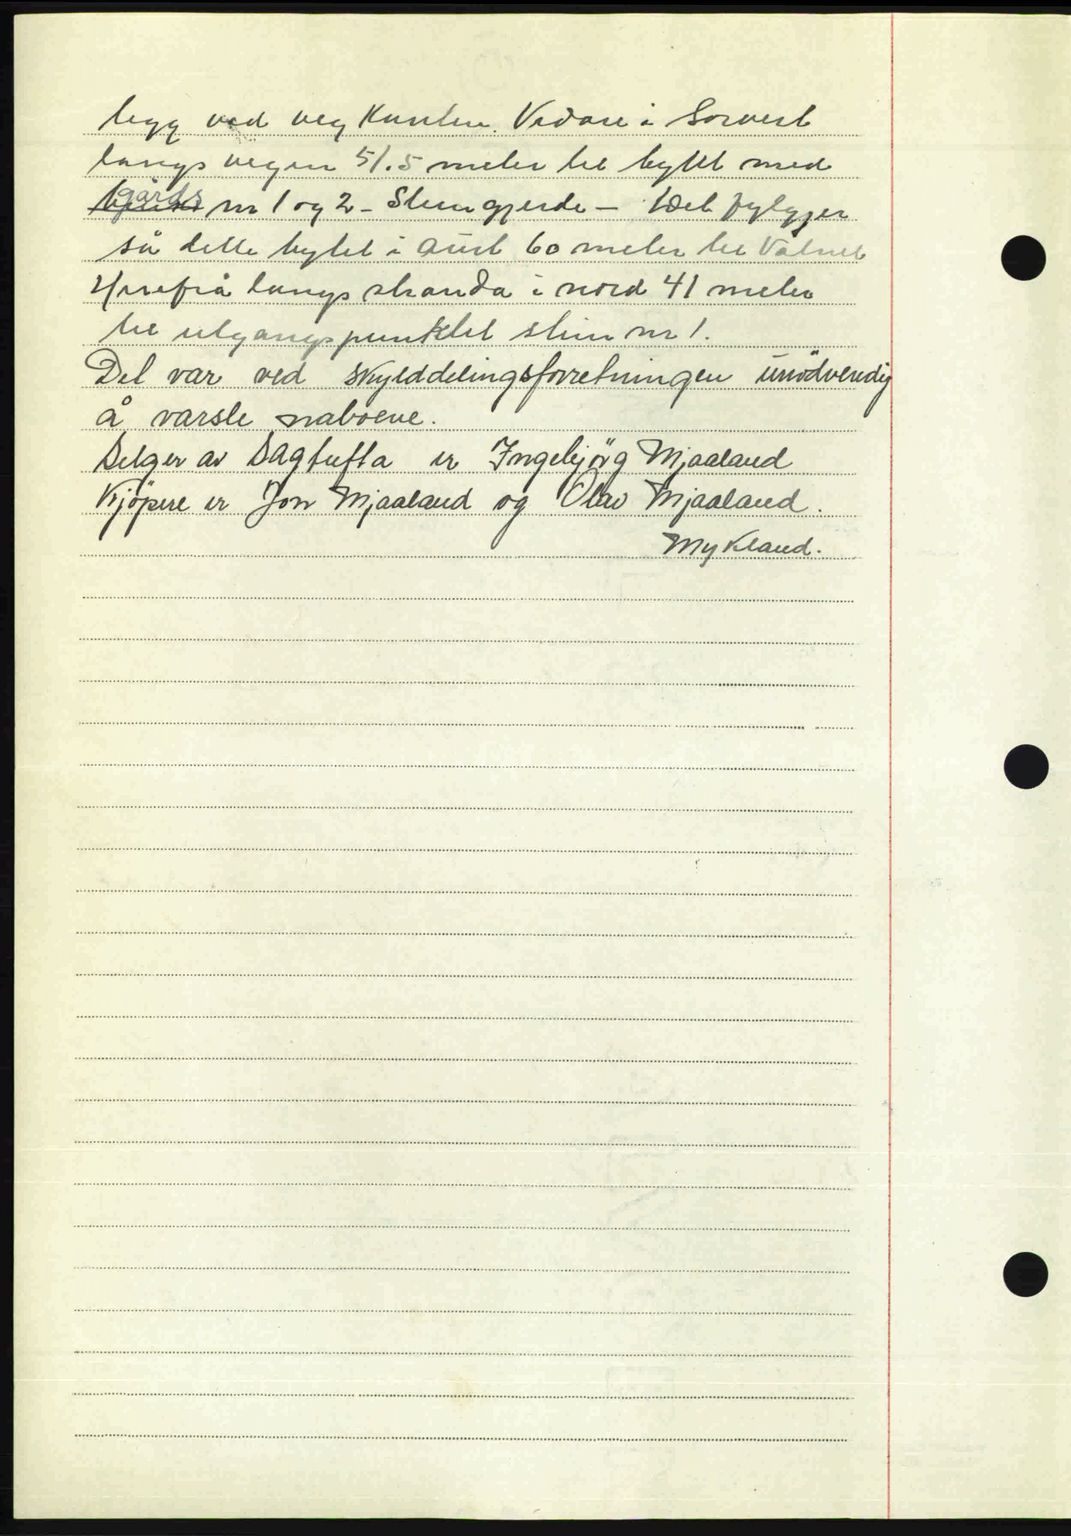 legg ved veg Kanten. Vidare i Sorvest
langs vegen 51.5 meter til bytet med
gårds nr 1 og 2 - Steingjerde - Det fylgjer
så dette bytet i aust 60 meter til Vatnet
Herefrå langs stranda i nord 41 meter
til utgangspunktet stein nr 1.
Det var ved skylddelingsforretningen unödvendig
å varsle naboene.
Selger av Dagtufta er Ingebjörg Mjaaland
Kjöpere er Jon Mjaaland og Olav Mjaaland.
Mykland.